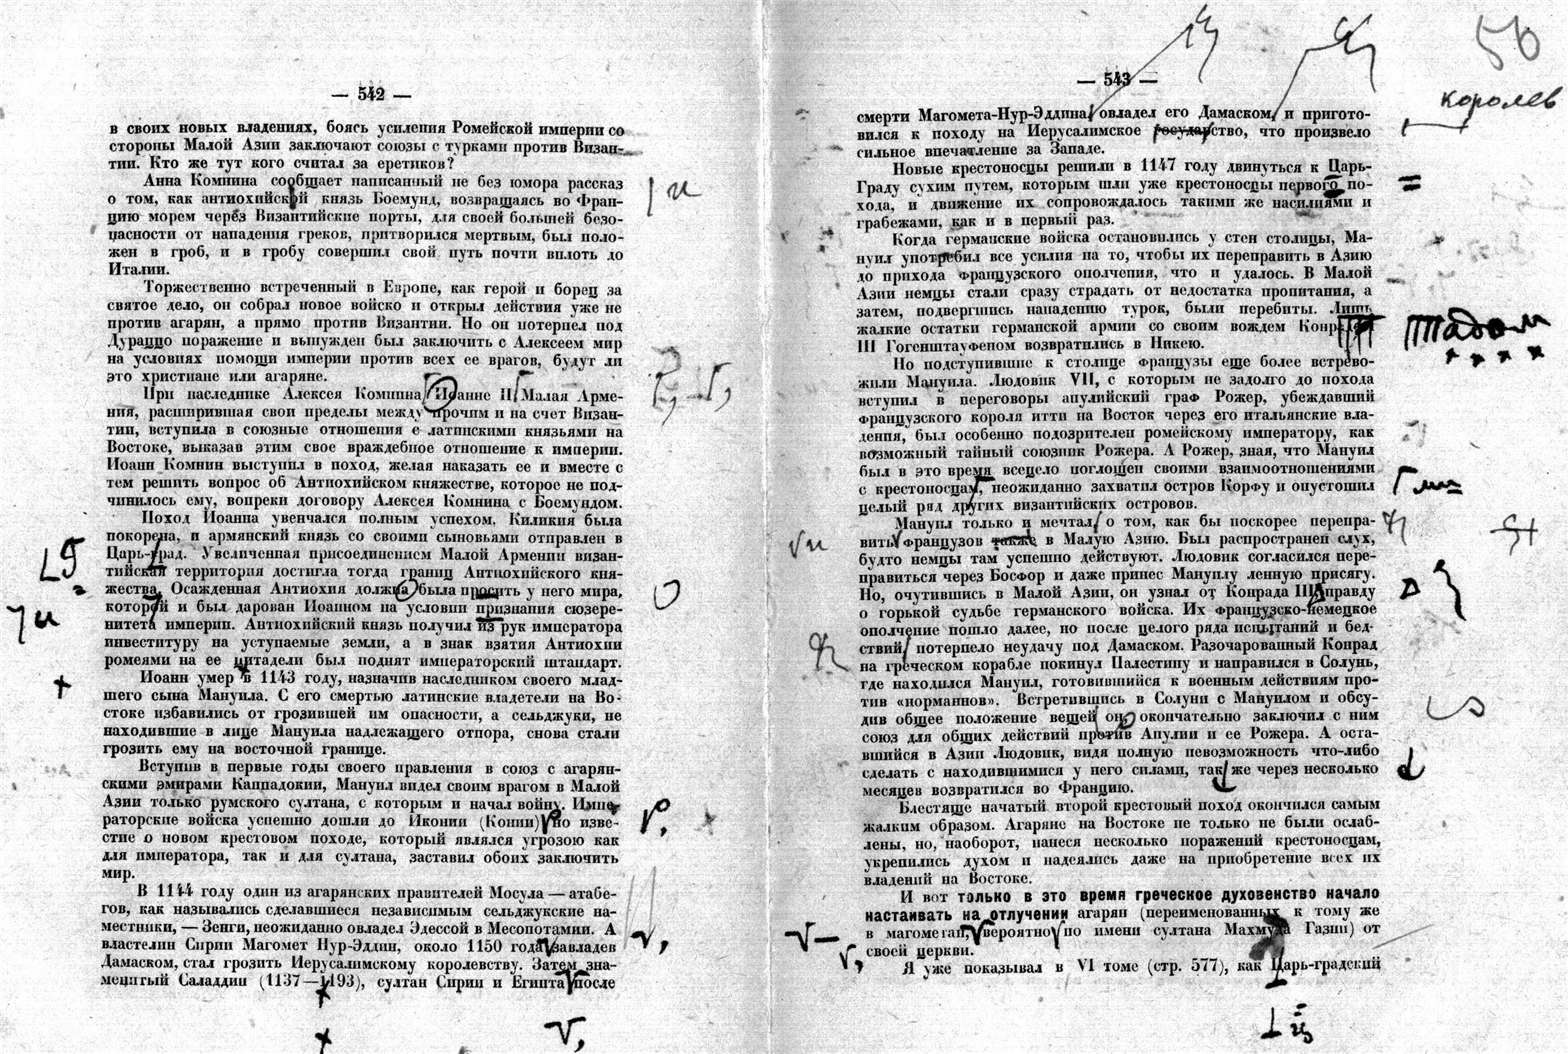 — 542 —
в своих новых владениях, боясь усиления Ромейской империи со
стороны Малой Азии заключают союзы с турками против Визан-
тии. Кто же тут кого считал за еретиков?
Анна Комнина сообщает написанный не без юмора рассказ
о том, как антиохийский князь Боемунд, возвращаясь во Фран-
цию морем через Византийские порты, для своей большей безо-
пасности от нападения греков, притворился мертвым, был поло-
жен в гроб, и в гробу совершил свой путь почти вплоть до
Италии.
Торжественно встреченный в Европе, как герой и борец за
святое дело, он собрал новое войско и открыл действия уже не
против агарян, а прямо против Византии. Но он потерпел под
Дураццо поражение и вынужден был заключить с Алексеем мир
на условиях помощи империи против всех ее врагов, будут ли
это христиане или агаряне.
При наследнике Алексея Комнина Иоанне II Малая Арме-
ния, расширившая свои пределы между прочим и на счет Визан-
тии, вступила в союзные отношения с латинскими князьями на
Востоке, выказав этим свое враждебное отношение к империи.
Иоанн Комнин выступил в поход, желая наказать ее и вместе с
тем решить вопрос об Антиохийском княжестве, которое не под-
чинилось ему, вопреки договору Алексея Комнина с Боемундом.
Поход Иоанна увенчался полным успехом. Киликия была
покорена, и армянский князь со своими сыновьями отправлен в
Царь-Град. Увеличенная присоединением Малой Армении визан-
тийская территория достигла тогда границ Антиохийского кня-
жества. Осажденная Антиохия должна была просить у него мира,
который и был дарован Иоанном на условии признания сюзере-
нитета империи. Антиохийский князь получил из рук императора
инвеституру на уступаемые земли, а в знак взятия Антиохии
ромеями на ее цитадели был поднят императорский штандарт.
Иоанн умер в 1143 году, назначив наследником своего млад-
шего сына Мануила. С его смертью латинские владетели на Во-
стоке избавились от грозившей им опасности, а сельджуки, не
находившие в лице Мануила надлежащего отпора, снова стали
грозить ему на восточной границе.
Вступив в первые годы своего правления в союз с агарян-
скими эмирами Каппадокии, Мануил видел своим врагом в Малой
Азии только румского султана, с которым и начал войну. Импе-
раторские войска успешно дошли до Иконии (Конии) но изве-
стие о новом крестовом походе, который являлся угрозою как
для императора, так и для султана, заставил обоих заключить
мир.
В 1144 году один из агарянских правителей Мосула — атабе-
гов, как назывались сделавшиеся независимым сельджукские на-
местники, — Зенги, неожиданно овладел Эдессой в Месопотамии. А
властелин Сирии Магомет Нур-Эддин, около 1150 года завладев
Дамаском, стал грозить Иерусалимскому королевству. Затем зна-
менитый Саладдин (1137—1193), султан Сирии и Египта после
— 543 —
56
королев
смерти Магомета-Нур-Эддина овладел его Дамаском, и пригото-
вился к походу на Иерусалимское государство, что произвело
сильное впечатление за Западе.
Новые крестоносцы решили в 1147 году двинуться к Царь-
Граду сухим путем, которым шли уже крестоносцы первого по-
хода, и движение их сопровождалось такими же насилиями и
грабежами, как и в первый раз.
Когда германские войска остановились у стен столицы, Ма-
нуил употребил все усилия на то, чтобы их переправить в Азию
до прихода французского ополчения, что и удалось. В Малой
Азии немцы стали сразу страдать от недостатка пропитания, а
затем, подвергшись нападению турок, были перебиты. Лишь
жалкие остатки германской армии со своим вождем Конрадом
III Гогенштауфеном возвратились в Никею.
Но подступившие к столице французы еще более встрево-
жили Мануила. Людовик VII, с которым не задолго до похода
вступил в переговоры апулийский граф Рожер, убеждавший
французского короля итти на Восток через его итальянские вла-
дения, был особенно подозрителен ромейскому императору, как
возможный тайный союзник Рожера. А Рожер, зная, что Мануил
был в это время всецело поглощен своими взаимоотношениями
с крестоносцам, неожиданно захватил остров Корфу и опустошил
целый ряд других византийских островов.
Мануил только и мечтал, о том, как бы поскорее перепра-
вить французов также в Малую Азию. Был распространен слух,
будто немцы там успешно действуют. Людовик согласился пере-
правиться через Босфор и даже принес Мануилу ленную присягу.
Но, очутившись в Малой Азии, он узнал от Конрада III правду
о горькой судьбе германского войска. Их французско-немецкое
ополчение пошло далее, но после целого ряда испытаний и бед-
ствий потерпело неудачу под Дамаском. Разочарованный Конрад
на греческом корабле покинул Палестину и направился в Солунь,
где находился Мануил, готовившийся к военным действиям про-
тив «норманнов». Встретившись в Солуни с Мануилом и обсу-
див общее положение вещей оно окончательно заключил с ним
союз для общих действий против Апулии и ее Рожера. А оста-
вшийся в Азии Людовик, видя полную невозможность что-либо
сделать с находившимися у него силами, так же через несколько
месяцев возвратился во Францию.
Блестяще начатый второй крестовый поход окончился самым
жалким образом. Агаряне на Востоке не только не были ослаб-
лены, но, наоборот, нанеся несколько поражений крестоносцам,
укрепились духом и надеялись даже на приобретение всех их
владений на Востоке.
И вот только в это время греческое духовенство начало
настаивать на отлучении агарян (переименованных к тому же
в магометан, вероятно по имени султана Махмуда Газии) от
своей церкви.
Я уже показывал в VI томе (стр. 577), как Царь-градский